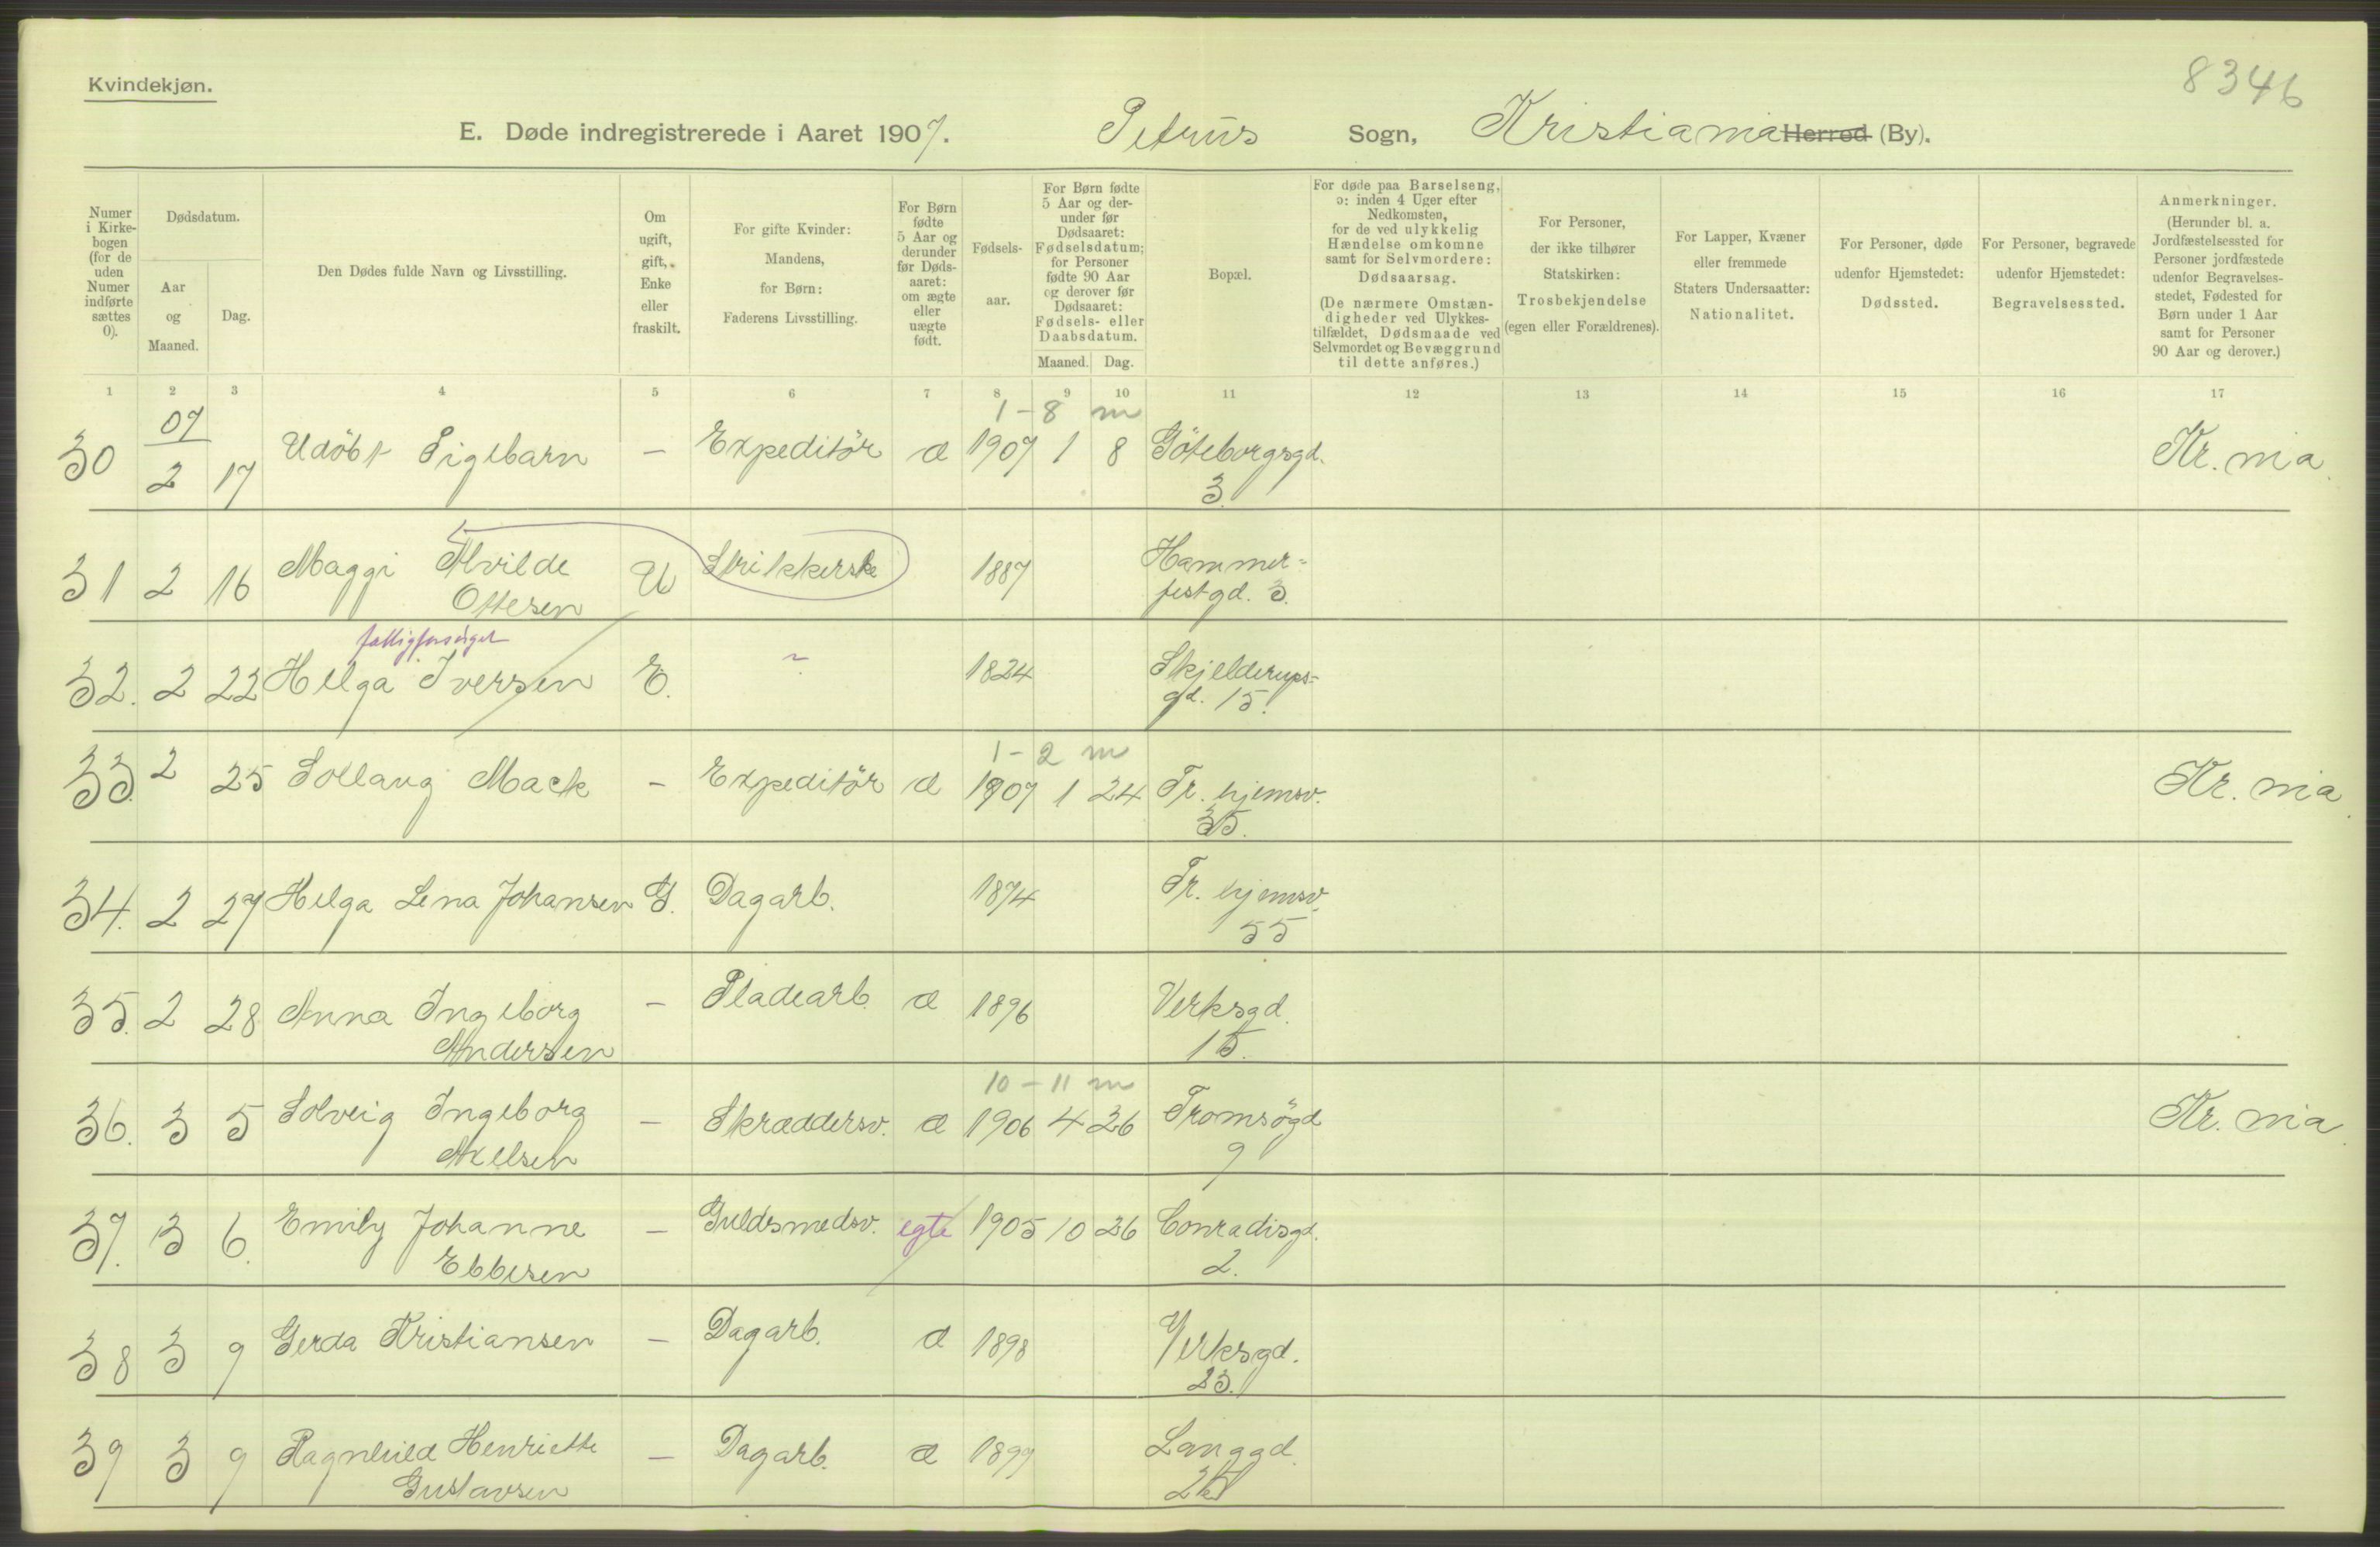 8346
Kvindekjøn.
E. Døde indregistrerede i Aaret 1907. Petrus Sogn, Kristiania Herred (By).
Numer i Kirkebogen (for de uden Numer indførte sættes 0).
Dødsdatum.
Aar og Maaned.
Dag.
Den Dødes fulde Navn og Livsstilling.
Om ugift, gift, Enke eller fraskilt.
For gifte Kvinder: Mandens, for Børn: Faderens Livsstilling.
For Børn fødte 5 Aar og derunder før Dødsaaret: om ægte eller uægte født.
Fødselsaar.
For Børn fødte 5 Aar og derunder før Dødsaaret: Fødselsdatum; for Personer fødte 90 Aar og derover før Dødsaaret: Fødsels- eller Daabsdatum.
Maaned. Dag.
Bopæl.
For døde paa Barselseng, ɔ: inden 4 Uger efter Nedkomsten, for de ved ulykkelig Hændelse omkomne samt for Selvmordere: Dødsaarsag.
(De nærmere Omstændigheder ved Ulykkestilfældet, Dødsmaade ved Selvmordet og Bevæggrund til dette anføres.)
For Personer, der ikke tilhører Statskirken: Trosbekjendelse (egen eller Forældrenes).
For Lapper, Kvæner eller fremmede Staters Undersaatter: Nationalitet.
For Personer, døde udenfor Hjemstedet: Dødssted.
For Personer, begravede udenfor Hjemstedet: Begravelsessted.
Anmerkninger.
(Herunder bl. a. Jordfæstelsessted for Personer jordfæstede udenfor Begravelsesstedet, Fødested for Børn under 1 Aar samt for Personer 90 Aar og derover.)
1 2 3 4 5 6 7 8 9 10 11 12 13 14 15 16 17
07 1-8 m
30 2 17 Udöbt Pigebarn — Expeditör æ 1907 1 8 Göteborgsgd. Kr.nia
3
31 2 16 Maggi Alvilde U Strikkerske 1887 Hammer=
Ottesen festgd. 3.
fattigforsörget
32. 2 22 Helga Iversen E. ~ 1824 Skjelderups=
gd. 15.
1-2 m
33. 2 25 Sollaug Mack — Expeditör æ 1907 1 24 Tr.hjemsv. Kr.nia
35.
34. 2 27 Helga Lena Johansen G. Dagarb. 1874 Tr.hjemsv.
55
35. 2 28 Anna Ingeborg — Pladearb. æ 1896 Verksgd.
Andersen 15.
10-11 m
36. 3 5 Solveig Ingeborg — Skræddersv. æ 1906 4 26 Tromsögd Kr.nia
Axelsen 9
37. 3 6. Emily Johanne — Guldsmedsv. egte 1905 10 26 Conradisgd.
Ebbesen 2.
38 3 9 Gerda Kristiansen — Dagarb. æ 1898 Verksgd.
23.
39 3 9 Ragnhild Henriette — Dagarb. æ 1899 Langgd.
Gustavsen